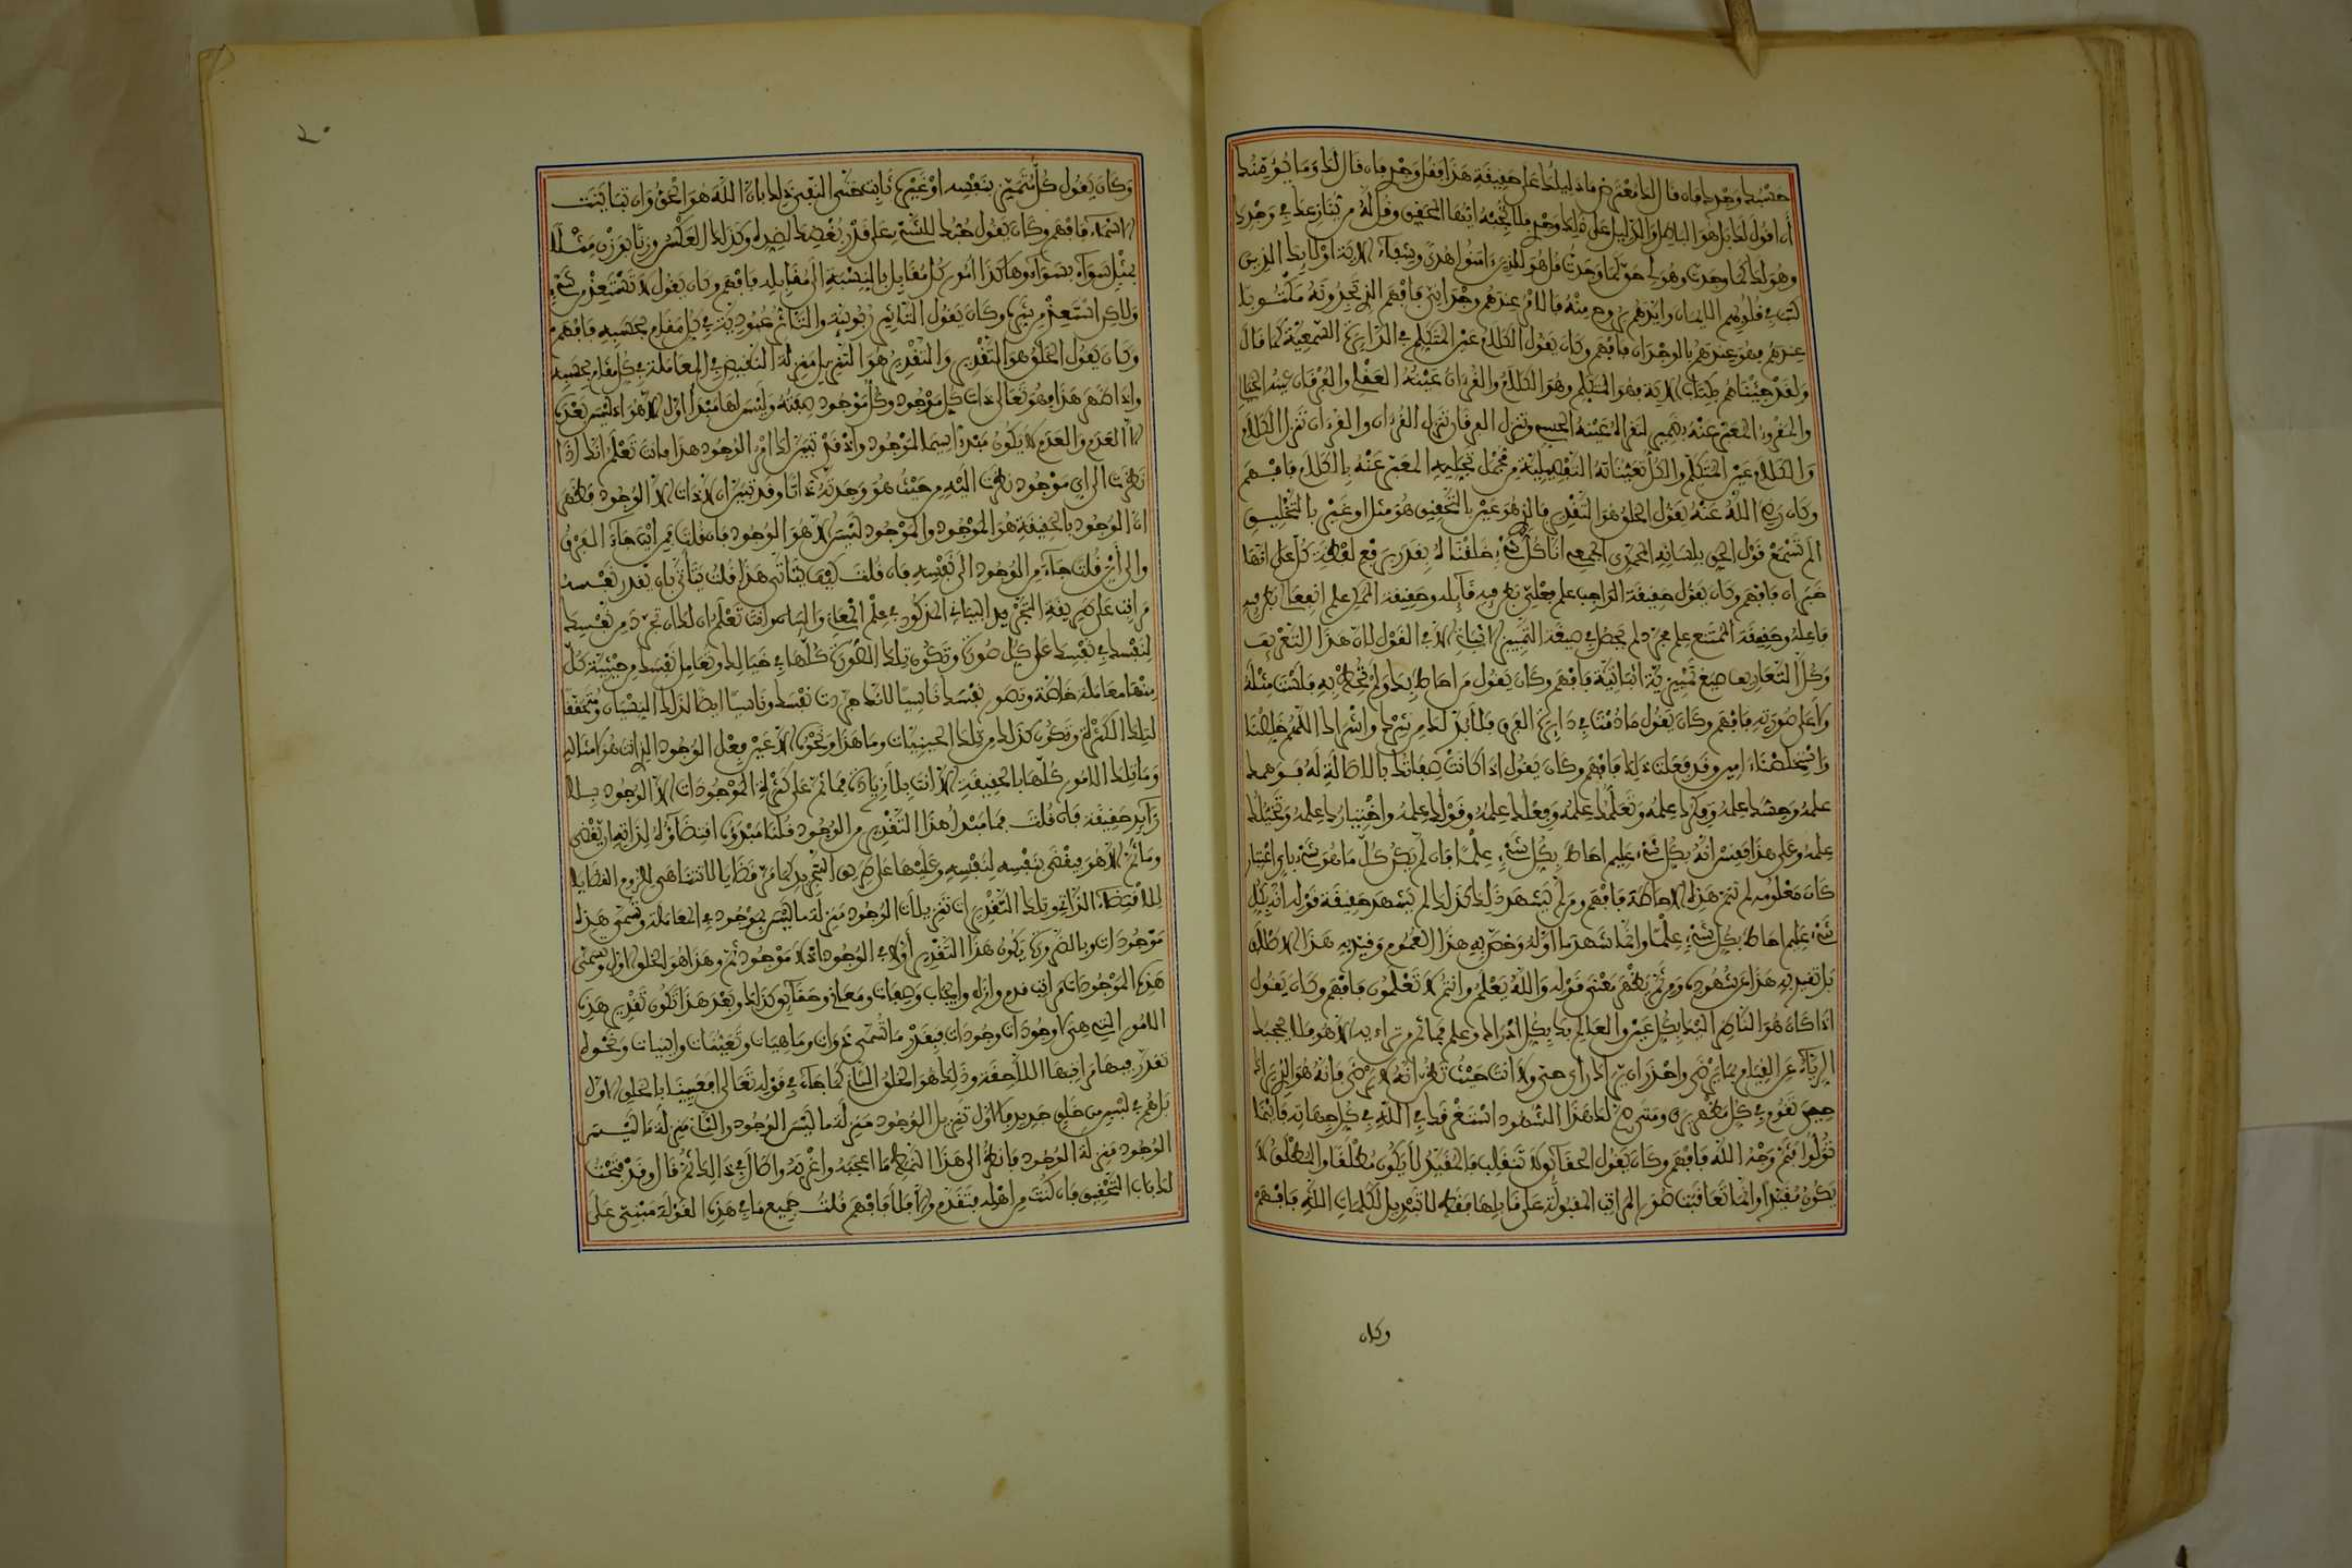 حسبك وجدك فان قال لك معترض ما دليلك على حقيقة هذا فقل وجدي فان قال لك وما يؤمنك
أن أقول لك بل هو الباطل والدليل على ذلك وجدي فلا تجبه أيها المحقق وقل له من ينازعك في وجدك
وهو لك كما وجدت وهو لي حق كما وجدت قل هو للذين ءامنوا هدى وشفاء الآية أولئك الذين
كتب في قلوبهم الايمان وأيدهم بروح منه فالأمر عندهم وجداني فافهم الذي تجدونه مكتوبا
عندهم فهو عندهم بالوجدان فافهم وكان يقول الكلام عين المتكلم في الدائرة السمعية كما قال
ولقد جئناهم بكتاب الآية فهو المتكلم وهو الكلام والقرءان عينه العقلي والفرقان عينه
والمقروء المعبر عنه وتنزل الفرقان تنزل القرءان والقرءان تنزل الكلام
والكلام عين المتكلم والكل تعيناته التفصيلية من مجمل تجليه المعبر عنه بالكلام فافهم
وكان رضي الله عنه يقول الخلق هو التقدير فالذي هو عين بالتحقيق هو مثل او غير بالتخليق
ألم تسمع قول الحق بلسانه المحمدي الجمعي انا كل شيء خلقناه بقدر برفع لفظة كل على انها
خبر ان فافهم وكان يقول حقيقة الواجب علم فعلي نظر فيه قابله وحقيقة الممكن علم انفعالي نظر فيه
فاعله وحقيقة الممتنع علم مجرد لم يحصل في صيغة التمييز اثباته الا في القول لأن هذا التعريف
وكل التعاريف صيغ تمييزية اثباتية فافهم وكان يقول من احاط بك ولم تحط به فلست مثله
ولا على صورته فافهم وكان يقول ما دمت في دائرة الفرق فلا بد لك من شرك واشراك اللهم خلصنا
واستخلصنا ءامين وقد فعلت ذلك فافهم وكان يقول اذا كانت صفاتك بالاصالة له فوهمك
علمه وحسك علمه وفكرك علمه وتعلمك علمه وفعلك علمه وقولك علمه واختيارك علمه وتخيلك
علمه وعلى هذا فقس انه بكل شيء عليم احاط بكل شيء علما فان لم يكن كل ما هو شيء باي اعتبار
كان معلومه لم تتم هذه الاحاطة فافهم ومن لم يشهد ذلك كذلك لم يشهد حقيقة قوله انه بكل
شيء عليم احاط بكل شيء علما وانما شهد ما اوله وخص به هذا العموم وقيد به هذا الاطلاق
بل تقيد به هذا عن شهوده ومن ثم يظهر معنى قوله والله يعلم وانتم لا تعلمون فافهم وكان يقول
اذا كان هو الناظر اليك بكل عين والعالم بك بكل ادراك وعلم فما ثم من تراءيه الا هو فلا يحجبك
الرياء عن القيام بما يرضي واحذر ان يراك اذا رءاي حتى ولا انت حيث تظن انه لا يرضى فانه هو الذي يراك
حين تقوم في كل مظهر يرى ومتى صح لك هذا الشهود استغرقك في الله في كل جهاته فاينما
تولوا فثم وجه الله فافهم وكان يقول الحقائق لا تنقلب فالمقيد لا يكون مطلقا والمطلق لا
يكون مقيدا وانما تعاقبت صور المراتب المقبولة على قابلها فقط لا تبديل لكلمات الله فافهم
وكان
٢٠
وكان يقول كل متميز بنفسه او غيره ثابت حتى النفي ذلك بان الله هو الحق وان تباينت
الاسماء فافهم وكان يقول حبك للشيء على قدر بغضك لضده وكذلك العكس وزنا بوزن مثلا
بمثل سواء بسواء وهاكذا امور كل مقابل بالنسبة الى مقابله فافهم وكان يقول لا تستعذ من شيء
ولاكن استعذ من شره وكان يقول التأثير ربوبية والتأثر عبودية في كل مقام بحسبه فافهم
وكان يقول الخلق هو التقدير والتقدير هو التنزيل منزلة النقيض في المعاملة في كل مقام بحسبه
واذا ظهر هذا فهو تعالى ذات كل موجود وكل موجود صفته وليس لها مبدأ اول الا هو اذ ليس بعده
الا العدم والعدم لا يكون مبدأ لاسيما الموجود واذ قد تبين لك امر الوجود هذا فانت تعلم انك اذا
نظرت الى اي موجود نظرت اليه من حيث هو وجدته ذاتا وقد تبين ان لا ذات الا الوجود فظهر
ان الوجود بالحقيقة هو الموجود والموجود ليس الا هو الوجود فان قلت فمن اين جاء الفرق
والى اين قلت جاء من الوجود الى نفسه فان قلت كيف يتأتى هذا قلت يتأتى بان يقدر نفسه
مراتب على طريقة التجريد البياني المذكور في علم المعاني والبيان وانت تعلم ان لك ان تجرد من نفسك
لنفسك في نفسك على كل صورة وتكون تلك الصورة كلها في خيالك وتعامل نفسك من حيثية كل
منها معاملة خاصة وتصور نفسك ناسيا لانك جردت نفسك وناسيا ايضا لذلك النسيان ومتحققا
لتلك الكثرة وتكون كذلك من تلك الحيثيات وما هذا ونحوه الا عين فعل الوجود الذي انت هو امثاله
وما تلك الامور كلها بالحقيقة الا انت بلا زيادة فما ثم على كثرة الموجودات الا الوجود بلا
زائد حقيقة فان قلت فما مبدأ هذا التقدير من الوجود قلنا مبدؤه اقتضاؤه لذاته ان يقضي
وما ثم الا هو فيقضي بنفسه لنفسه وعليها على طريق التجريد كما مر قضايا لا تتناهى للزوم القضايا
للاقتضاء الذاتي وتلك التقديرات تنزيلات الوجود منزلة ما ليس بموجود في المعاملة وتسمى هذه
موجودات وبالضرورة يكون هذا التقدير أولا في الوجود اذ لا موجود ثم وهذا هو الخلق الاول وتسمى
هذه الموجودات مراتب قدم وازل وايجاب وصفات ومعاني وحقائق كذلك وبعد هذا تكون تقدير هذه
الامور التي هي الاوجودات وجودات فيقدر ما تسمى ذوات وماهيات وتعينات وانيات ونحوه
تقدر فيها مراتبها اللاحقة وذلك هو الخلق الثاني كما جاء في قوله تعالى افعيينا بالخلق الاول
بل هم في لبس من خلق جديد فالاول تنزيل الوجود منزلة ما ليس الوجود والثاني منزلة ما ليس
الوجود منزلة الوجود فانظر الى هذا النمط ما اعجبه واغربه واطال في ذلك ثم قال وقد فتحت
لك باب التحقيق فان كنت من اهله فتقدم والا فلا فافهم قلت جميع ما في هذه القولة مبني على